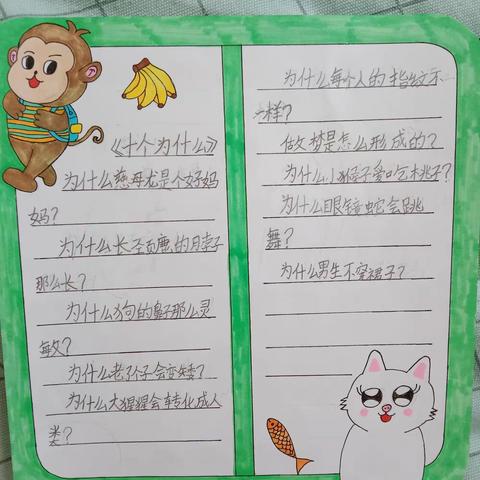 《十个为什么》
为什么慈母龙是个好妈
妈？
为什么长颈鹿的脖子
那么长？
为什么狗的鼻子那么灵
敏？
为什么老了个子会变矮？
为什么大猩猩会转化成人
类？
为什么每个人的指纹不
一样？
做梦是怎么形成的？
为什么小猴子爱吃桃子？
为什么眼镜蛇会跳
舞？
为什么男生不穿裙子？